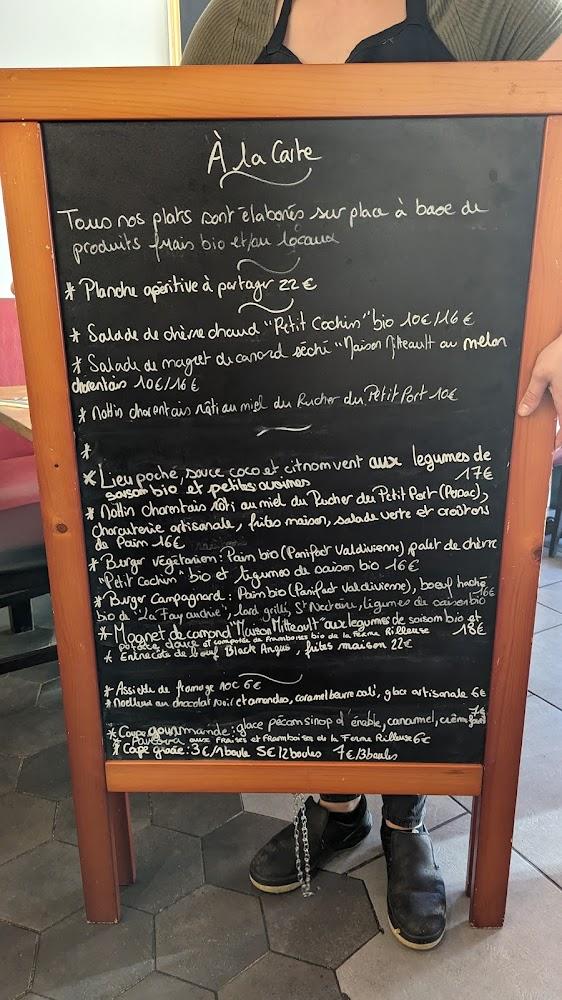 À la Carte
Tous nos plats sont élaborés sur place à base de
produits frais bio et/ou locaux
* Planche apéritive à partager 22 €
* Salade de chèvre chaud "Petit Cochin" bio 10€/16 €
* Salade de magret de canard séché "Maison Mitteault au melon
charentais 10€/16 €
* Mottin charentais rôti au miel du Rucher du Petit Port 10€
*
* Lieu poché, sauce coco et citron vert aux legumes de
saison bio et petites avoines 17€
* Mottin charentais rôti au miel du Rucher du Petit Port (Popac),
charcuterie artisanale, frites maison, salade verte et croûtons
de Pain 16€
* Burger végétarien : Pain bio (Panifact Valdivienne) palet de chèvre
"Petit Cochin" bio et légumes de saison bio 16€
* Burger Campagnard : Pain bio (Panifact Valdivienne), boeuf haché 16€
bio de "La Fay", lard grillé, St Nectaire, légumes de saison bio
* Magret de canard "Maison Mitteault" aux legumes de saison bio et
patate douce et compotée de Framboises bio de la ferme Rilleuse 18€
* Entrecôte de boeuf Black Angus, frites maison 22€
* Assiette de fromage AOC 6€
* Moelleux au chocolat noir et amandes, caramel beurre salé, glace artisanale 6€
* Coupe gourmande : glace pécan sirop d'érable, caramel, crème 7€
* Pavlova aux Fraises et Framboises de la Ferme Rilleuse 6€
* Coupe glacée : 3€/1boule 5€/2boules 7€/3boules